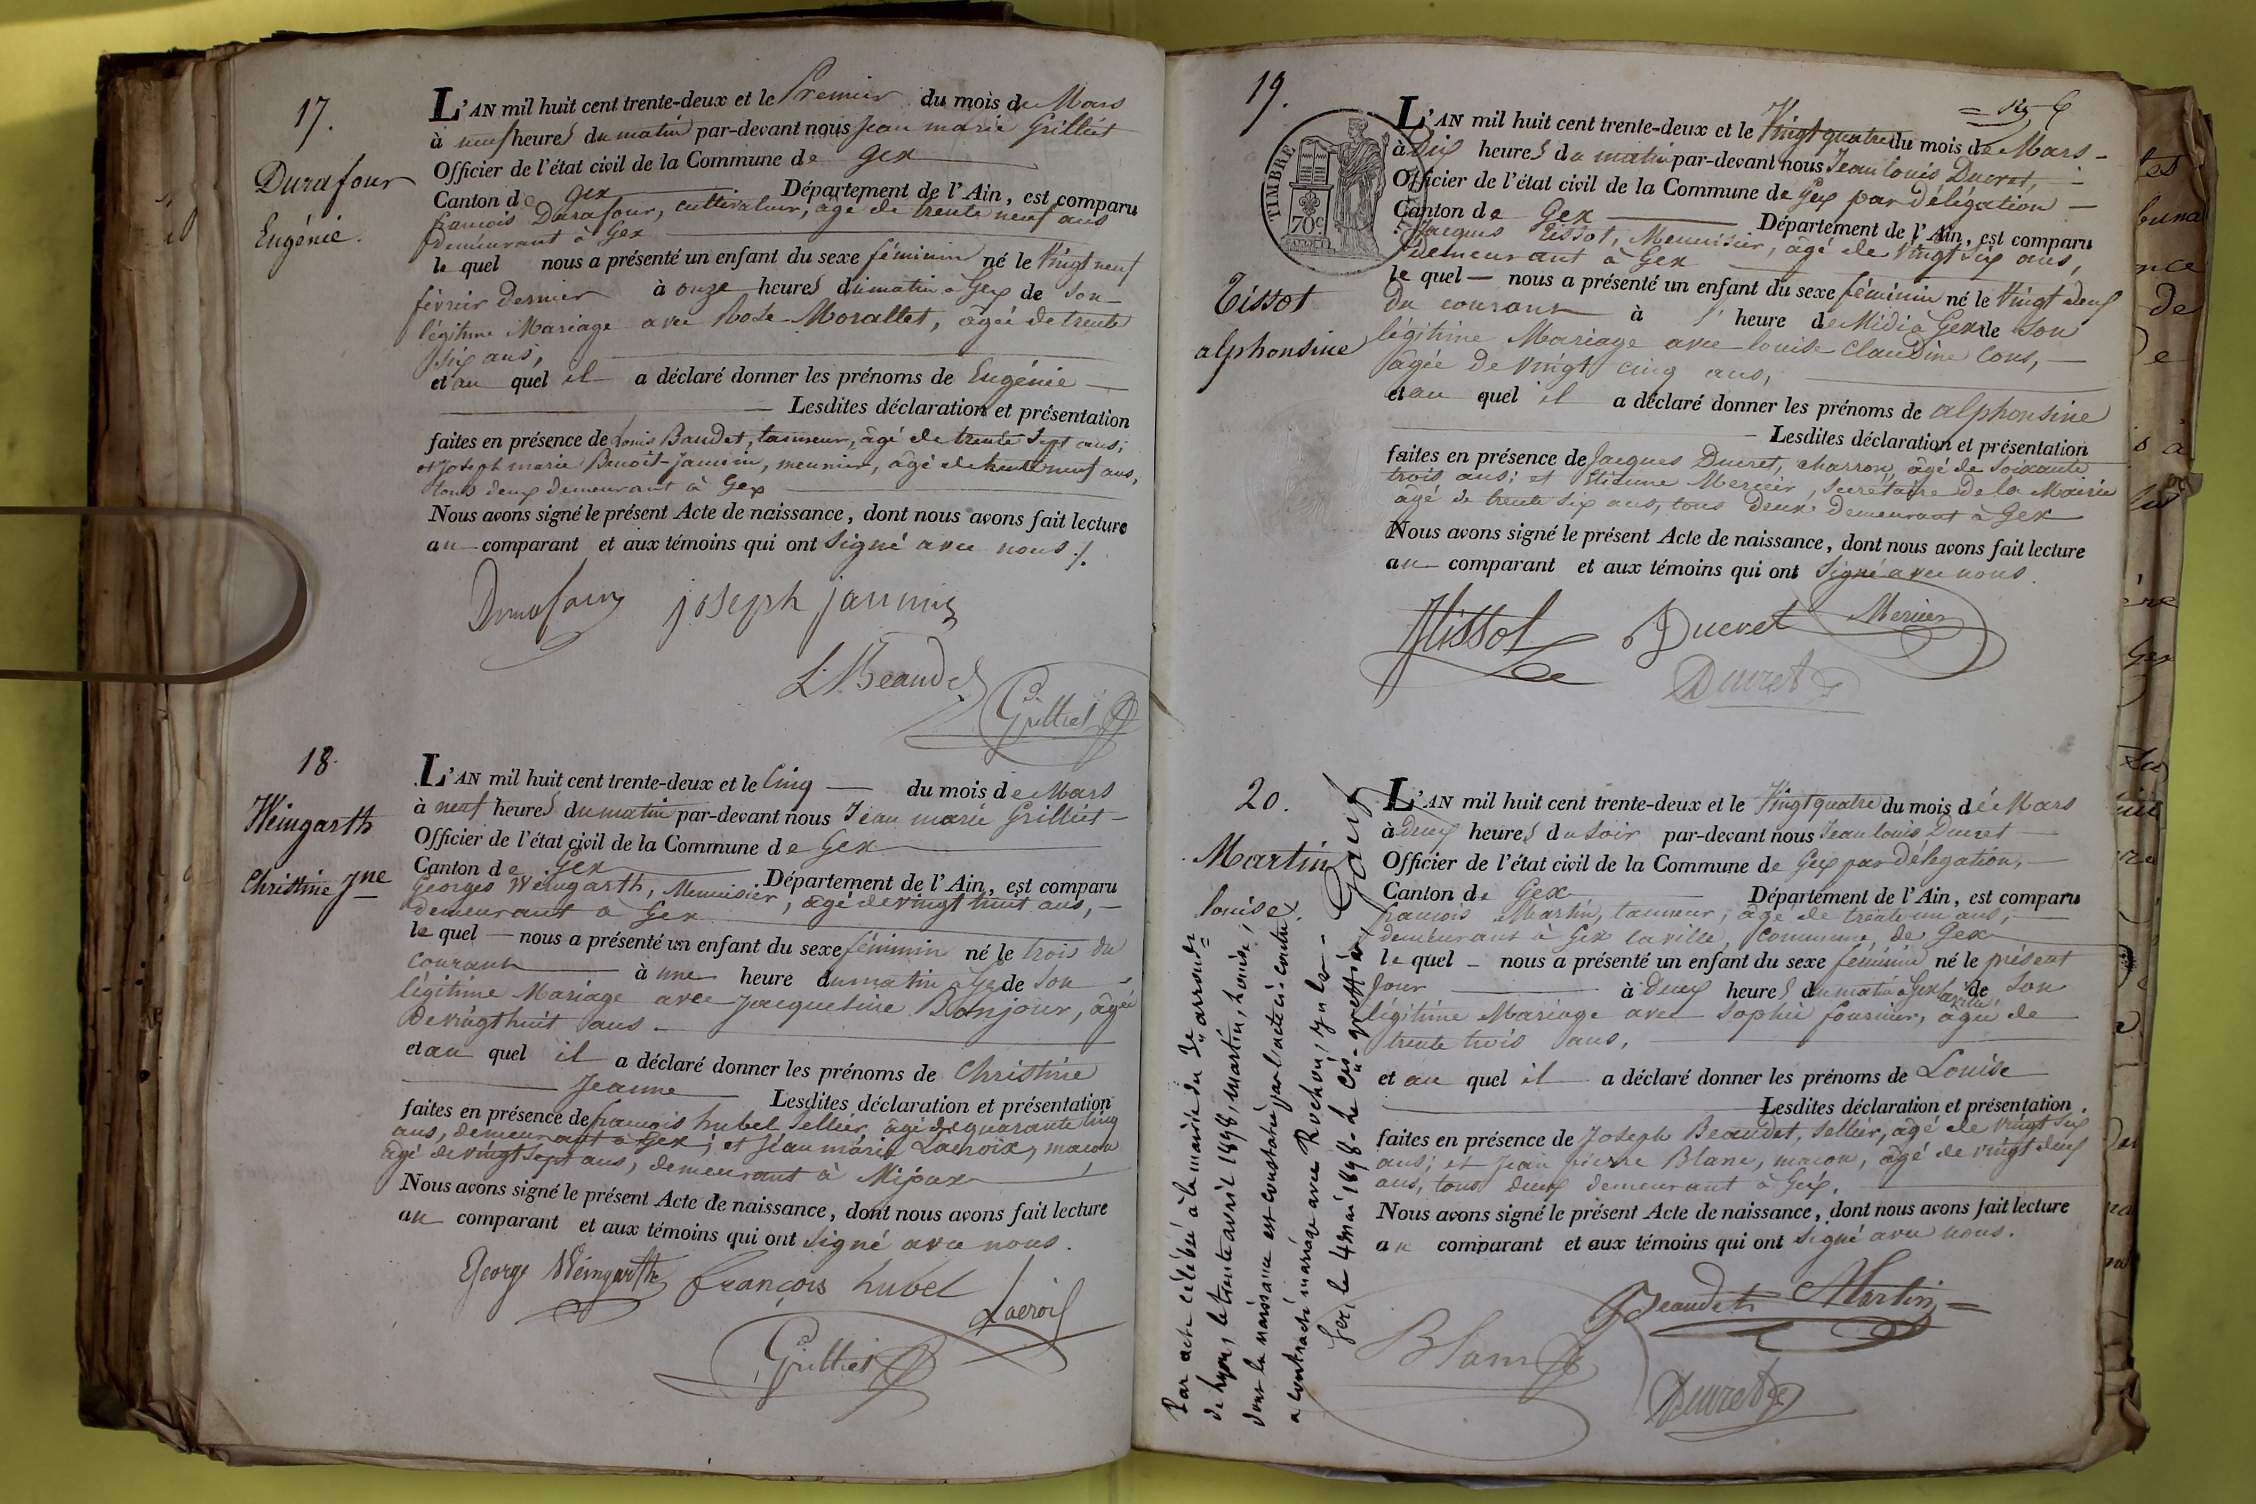 17.
Durafour
Eugénie.
L'AN mil huit cent trente-deux et le Premier du mois de Mars
à neuf heures du matin par-devant nous Jean marie Grilliet
Officier de l'état civil de la Commune de Gex
Canton de Gex Département de l'Ain, est comparu
françois Durafour, cultivateur, âgé de trente neuf ans
demeurant à Gex
le quel nous a présenté un enfant du sexe féminin né le Vingt neuf
février dernier à onze heures du matin à Gex de son
légitime Mariage avec Rose Morallet, agée de trente
six ans,
et au quel il a déclaré donner les prénoms de Eugénie
Lesdites déclaration et présentation
faites en présence de Louis Baudet, tanneur, âgé de trente sept ans;
et Joseph marie Benoit-Jannin, meunier, âgé de trente neuf ans,
tous deux demeurant à Gex
Nous avons signé le présent Acte de naissance, dont nous avons fait lecture
au comparant et aux témoins qui ont signé avec nous ./.
Durafour joseph jannin
L. Beaudet
Grilliet
18.
Weingarth
Christine Jne
L'AN mil huit cent trente-deux et le Cinq du mois de Mars
à neuf heures du matin par-devant nous Jean marie Grilliet
Officier de l'état civil de la Commune de Gex
Canton de Gex Département de l'Ain, est comparu
Georges Weingarth, Menuisier, âgé de vingt huit ans,
demeurant à Gex
le quel nous a présenté un enfant du sexe féminin né le trois du
courant à une heure du matin à Gex de son
légitime Mariage avec Jacqueline Bonjour, âgée
de vingt huit ans.
et au quel il a déclaré donner les prénoms de Christine
Jeanne Lesdites déclaration et présentation
faites en présence de françois hubel Sellier, âgé de quarante cinq
ans, demeurant à Gex; et Jean marie Lacroix, maçon
âgé de vingt sept ans, demeurant à Mijoux
Nous avons signé le présent Acte de naissance, dont nous avons fait lecture
au comparant et aux témoins qui ont signé avec nous.
George Weingarth françois hubel
Lacroix
Grilliet
19.
TIMBRE
70c
Tissot
alphonsine
L'AN mil huit cent trente-deux et le Vingt quatre du mois de Mars
à Dix heures du matin par-devant nous Jean louis Ducret,
Officier de l'état civil de la Commune de Gex par délégation
Canton de Gex Département de l'Ain, est comparu
Jacques Tissot, Menuisier, âgé de vingt six ans,
demeurant à Gex
le quel nous a présenté un enfant du sexe féminin né le Vingt deux
du courant à l' heure de Midi à Gex de son
légitime Mariage avec louise Claudine Cons,
âgée de vingt cinq ans,
et au quel il a déclaré donner les prénoms de alphonsine
Lesdites déclaration et présentation
faites en présence de Jacques Ducret, charron, âgé de soixante
trois ans; et Etienne Mercier, secrétaire de la Mairie
âgé de trente six ans, tous deux demeurant à Gex
Nous avons signé le présent Acte de naissance, dont nous avons fait lecture
au comparant et aux témoins qui ont signé avec nous.
Tissot Ducret Mercier
Ducret
20.
Martin
louise.
L'AN mil huit cent trente-deux et le Vingt quatre du mois de Mars
à deux heures du soir par-devant nous Jean louis Ducret
Officier de l'état civil de la Commune de Gex par délégation,
Canton de Gex Département de l'Ain, est comparu
françois Martin, tanneur, âgé de trente un ans,
demeurant à Gex la ville, commune de Gex
le quel nous a présenté un enfant du sexe féminin né le présent
jour à deux heures du matin à Gex la ville de son
légitime Mariage avec Sophie fournier, âgée de
trente trois ans,
et au quel il a déclaré donner les prénoms de Louise
Lesdites déclaration et présentation
faites en présence de Joseph Beaudet, sellier, âgé de vingt six
ans; et Jean pierre Blanc, maçon, âgé de vingt deux
ans, tous deux demeurant à Gex.
Nous avons signé le présent Acte de naissance, dont nous avons fait lecture
au comparant et aux témoins qui ont signé avec nous.
Beaudet Martin
Blanc
Ducret
Par acte célébré à la mairie du 3e arrondt
de Lyon, le trente avril 1898, Martin, Louise,
dont la naissance est constatée par l'acte ci-contre,
a contracté mariage avec
Gex, le 4 mai 1898. Le greffier